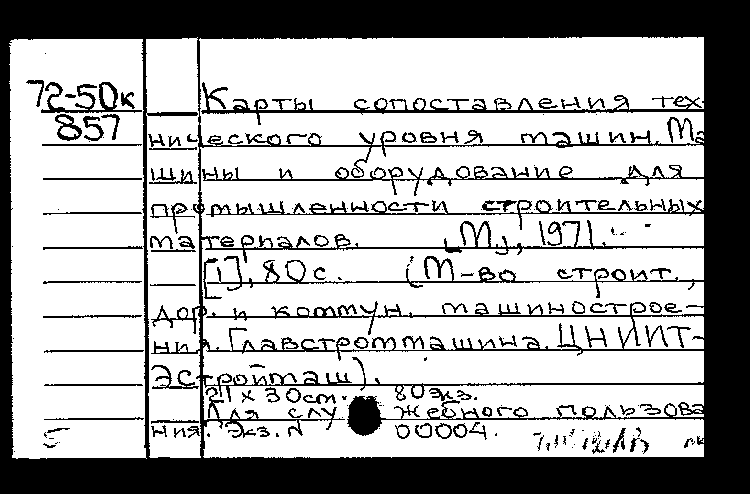 72-50к
857
Карты сопоставления тех-
нического уровня машин. Ма
шины и оборудование для
промышленности строительных
материалов. [М.], 1971.
[1], 80 с. (М-во строит.,
дор. и коммун. машинострое-
ния. Главстроммашина. ЦНИИТ-
Эстроймаш).
21 х 30 см. 80 экз.
Для служебного пользова
ния. Экз. N 00004.
5